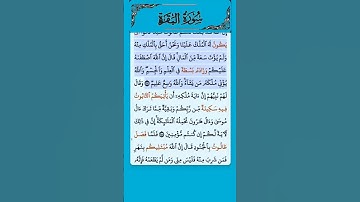 سُورَةُ الْبَقَرَةِ
يَكُونُ لَهُ الْمُلْكُ عَلَيْنَا وَنَحْنُ أَحَقُّ بِالْمُلْكِ مِنْهُ
وَلَمْ يُؤْتَ سَعَةً مِّنَ الْمَالِ قَالَ إِنَّ اللَّهَ اصْطَفَاهُ
عَلَيْكُمْ وَزَادَهُ بَسْطَةً فِي الْعِلْمِ وَالْجِسْمِ وَاللَّهُ
يُؤْتِي مُلْكَهُ مَن يَشَاءُ وَاللَّهُ وَاسِعٌ عَلِيمٌ وَقَالَ
لَهُمْ نَبِيُّهُمْ إِنَّ آيَةَ مُلْكِهِ أَن يَأْتِيَكُمُ التَّابُوتُ
فِيهِ سَكِينَةٌ مِّن رَّبِّكُمْ وَبَقِيَّةٌ مِّمَّا تَرَكَ آلُ
مُوسَى وَآلُ هَارُونَ تَحْمِلُهُ الْمَلَائِكَةُ إِنَّ فِي ذَلِكَ
لَآيَةً لَّكُمْ إِن كُنتُم مُّؤْمِنِينَ فَلَمَّا فَصَلَ
طَالُوتُ بِالْجُنُودِ قَالَ إِنَّ اللَّهَ مُبْتَلِيكُم بِنَهَرٍ
فَمَن شَرِبَ مِنْهُ فَلَيْسَ مِنِّي وَمَن لَّمْ يَطْعَمْهُ فَإِنَّهُ